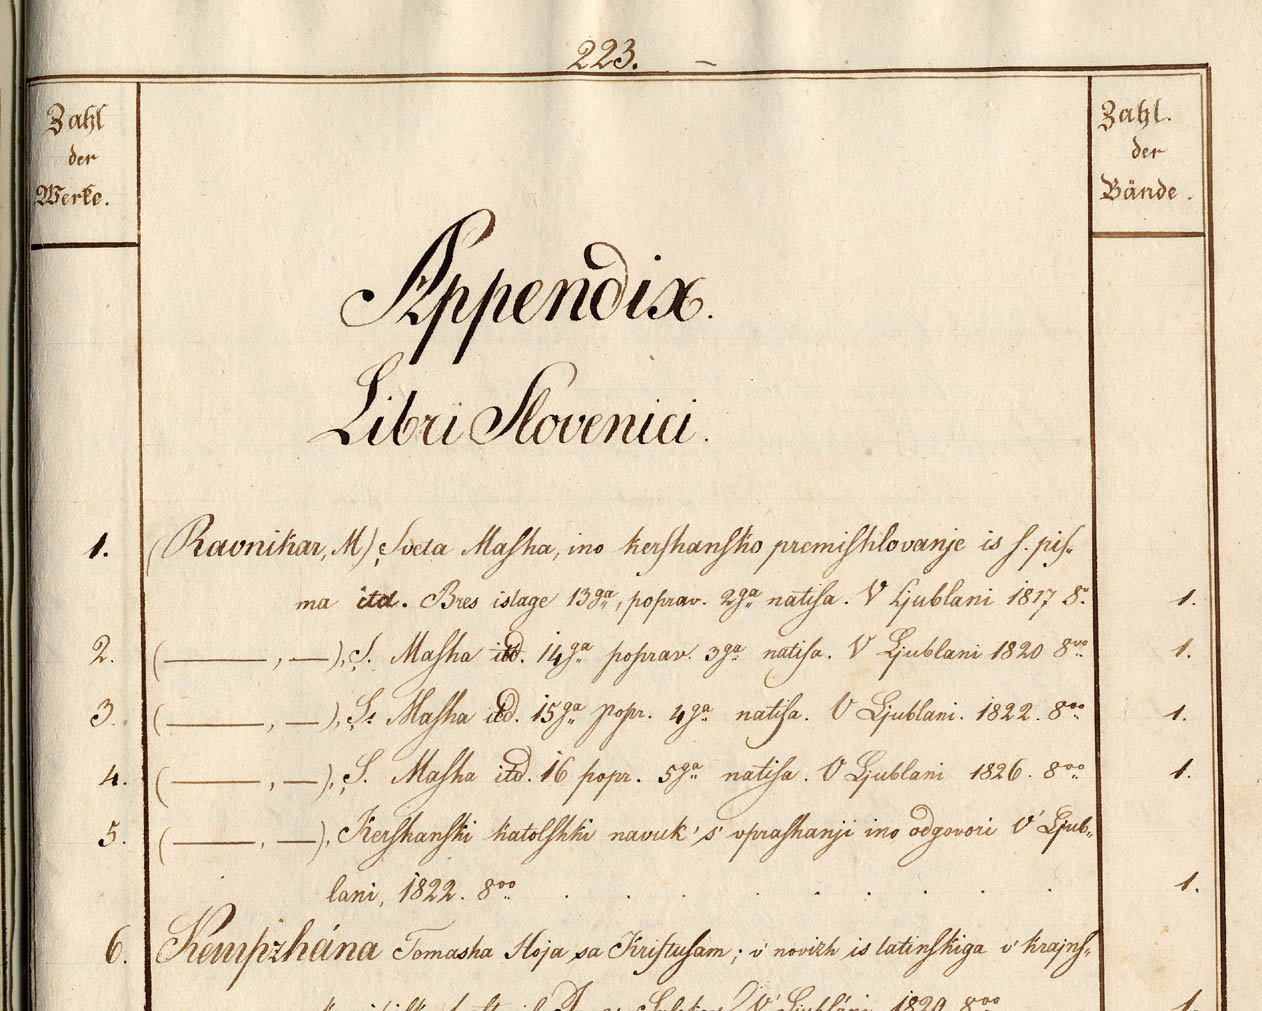 223.
Zahl
der
Werke.
Zahl.
der
Bände.
Appendix.
Libri Slovenici.
1. (Ravnikar, M) Sveta Masha, ino kershansko premishlovanje is s. pis-
ma itd. Bres islage 13ga, poprav. 2ga natisa. V Ljublani 1817 8o. 1.
2. (———, —), S. Masha itd. 14ga poprav. 3ga natisa. V Ljublani 1820 8vo. 1.
3. (———, —), S. Masha itd. 15ga popr. 4ga natisa. V Ljublani. 1822. 8vo. 1.
4. (———, —), S. Masha itd. 16 popr. 5ga natisa. V Ljublani 1826. 8vo. 1.
5. (———, —), Kershanski katolshki navuk 's' vprashanji ino odgovori V' Ljub-
lani, 1822. 8vo. . . . . . . . . . 1.
6. Kempzhána Tomasha Hoja sa Kristusam; v' novizh is latinskiga v' krajns-
V' Ljubláni 1820 8vo 1.